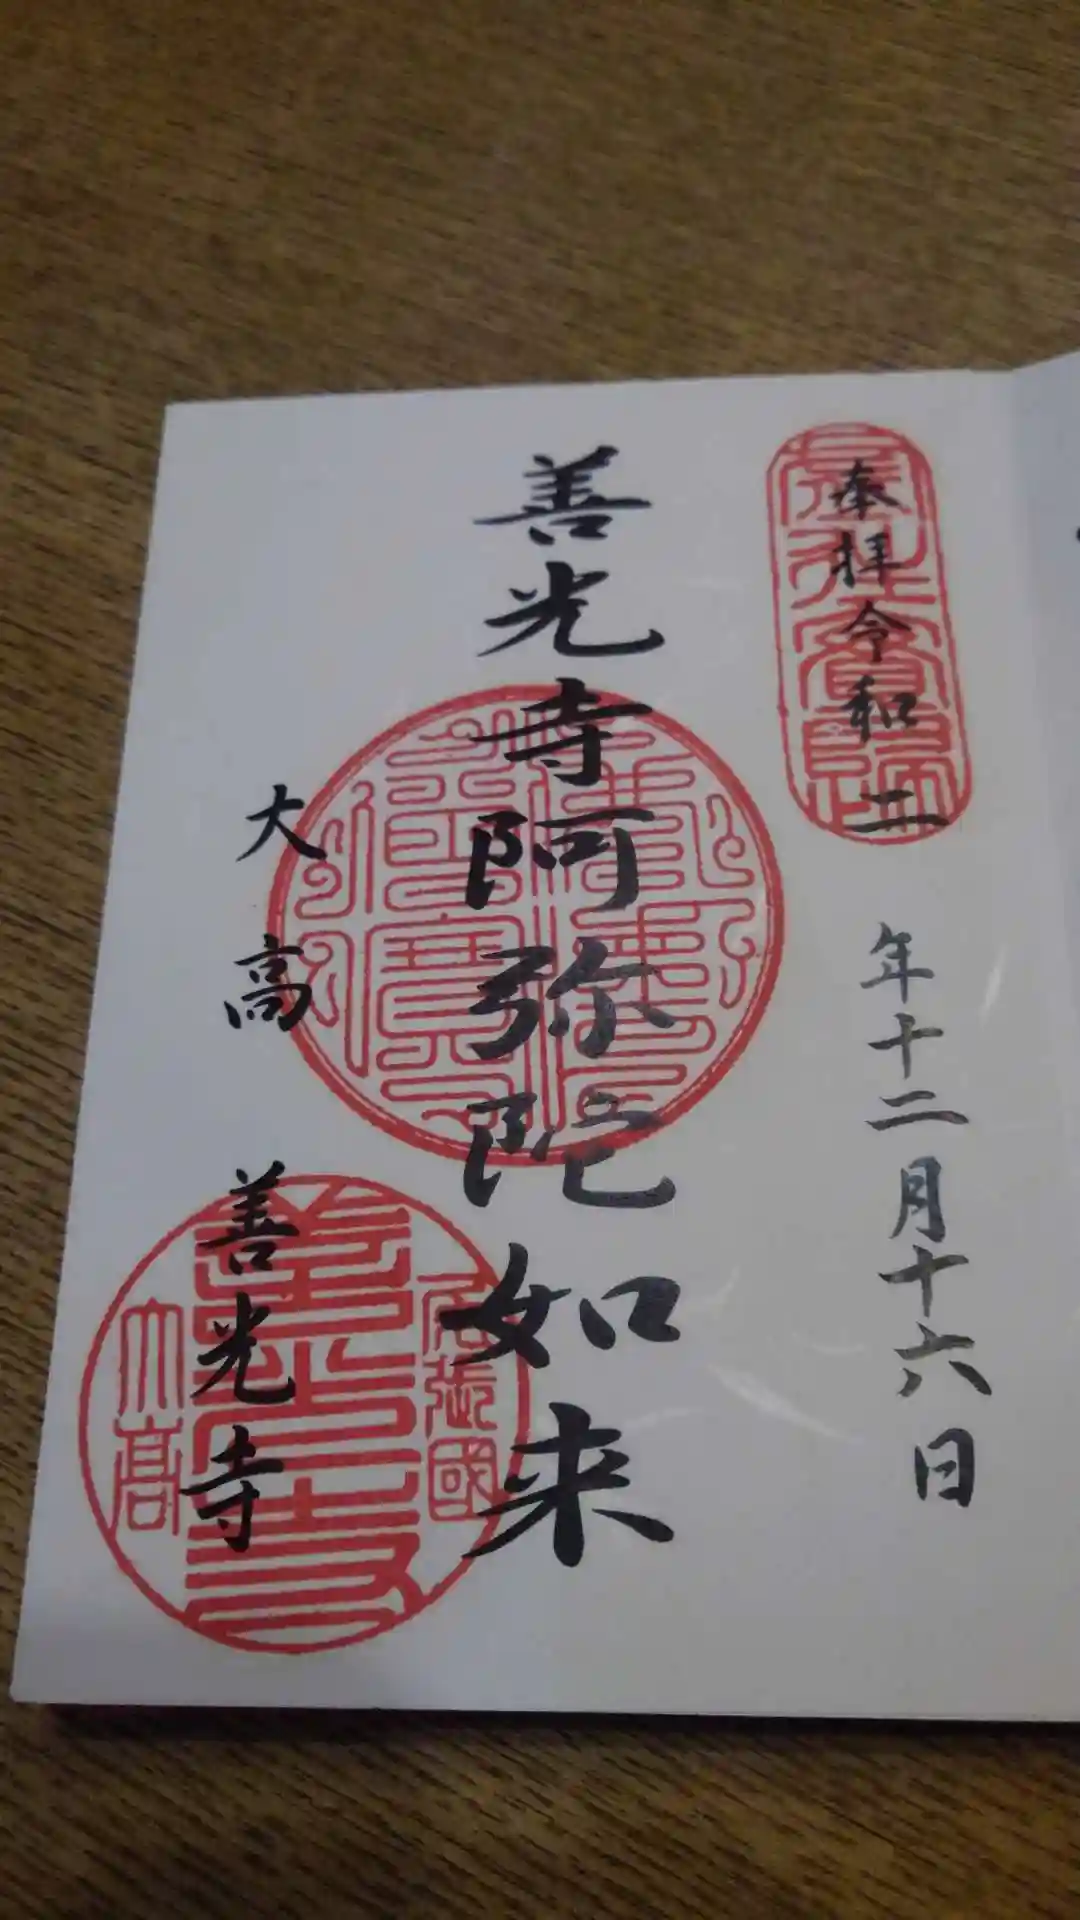 奉拝令和二年十二月十六日
善光寺阿弥陀如来
大高善光寺
尾張國
善光寺
大高